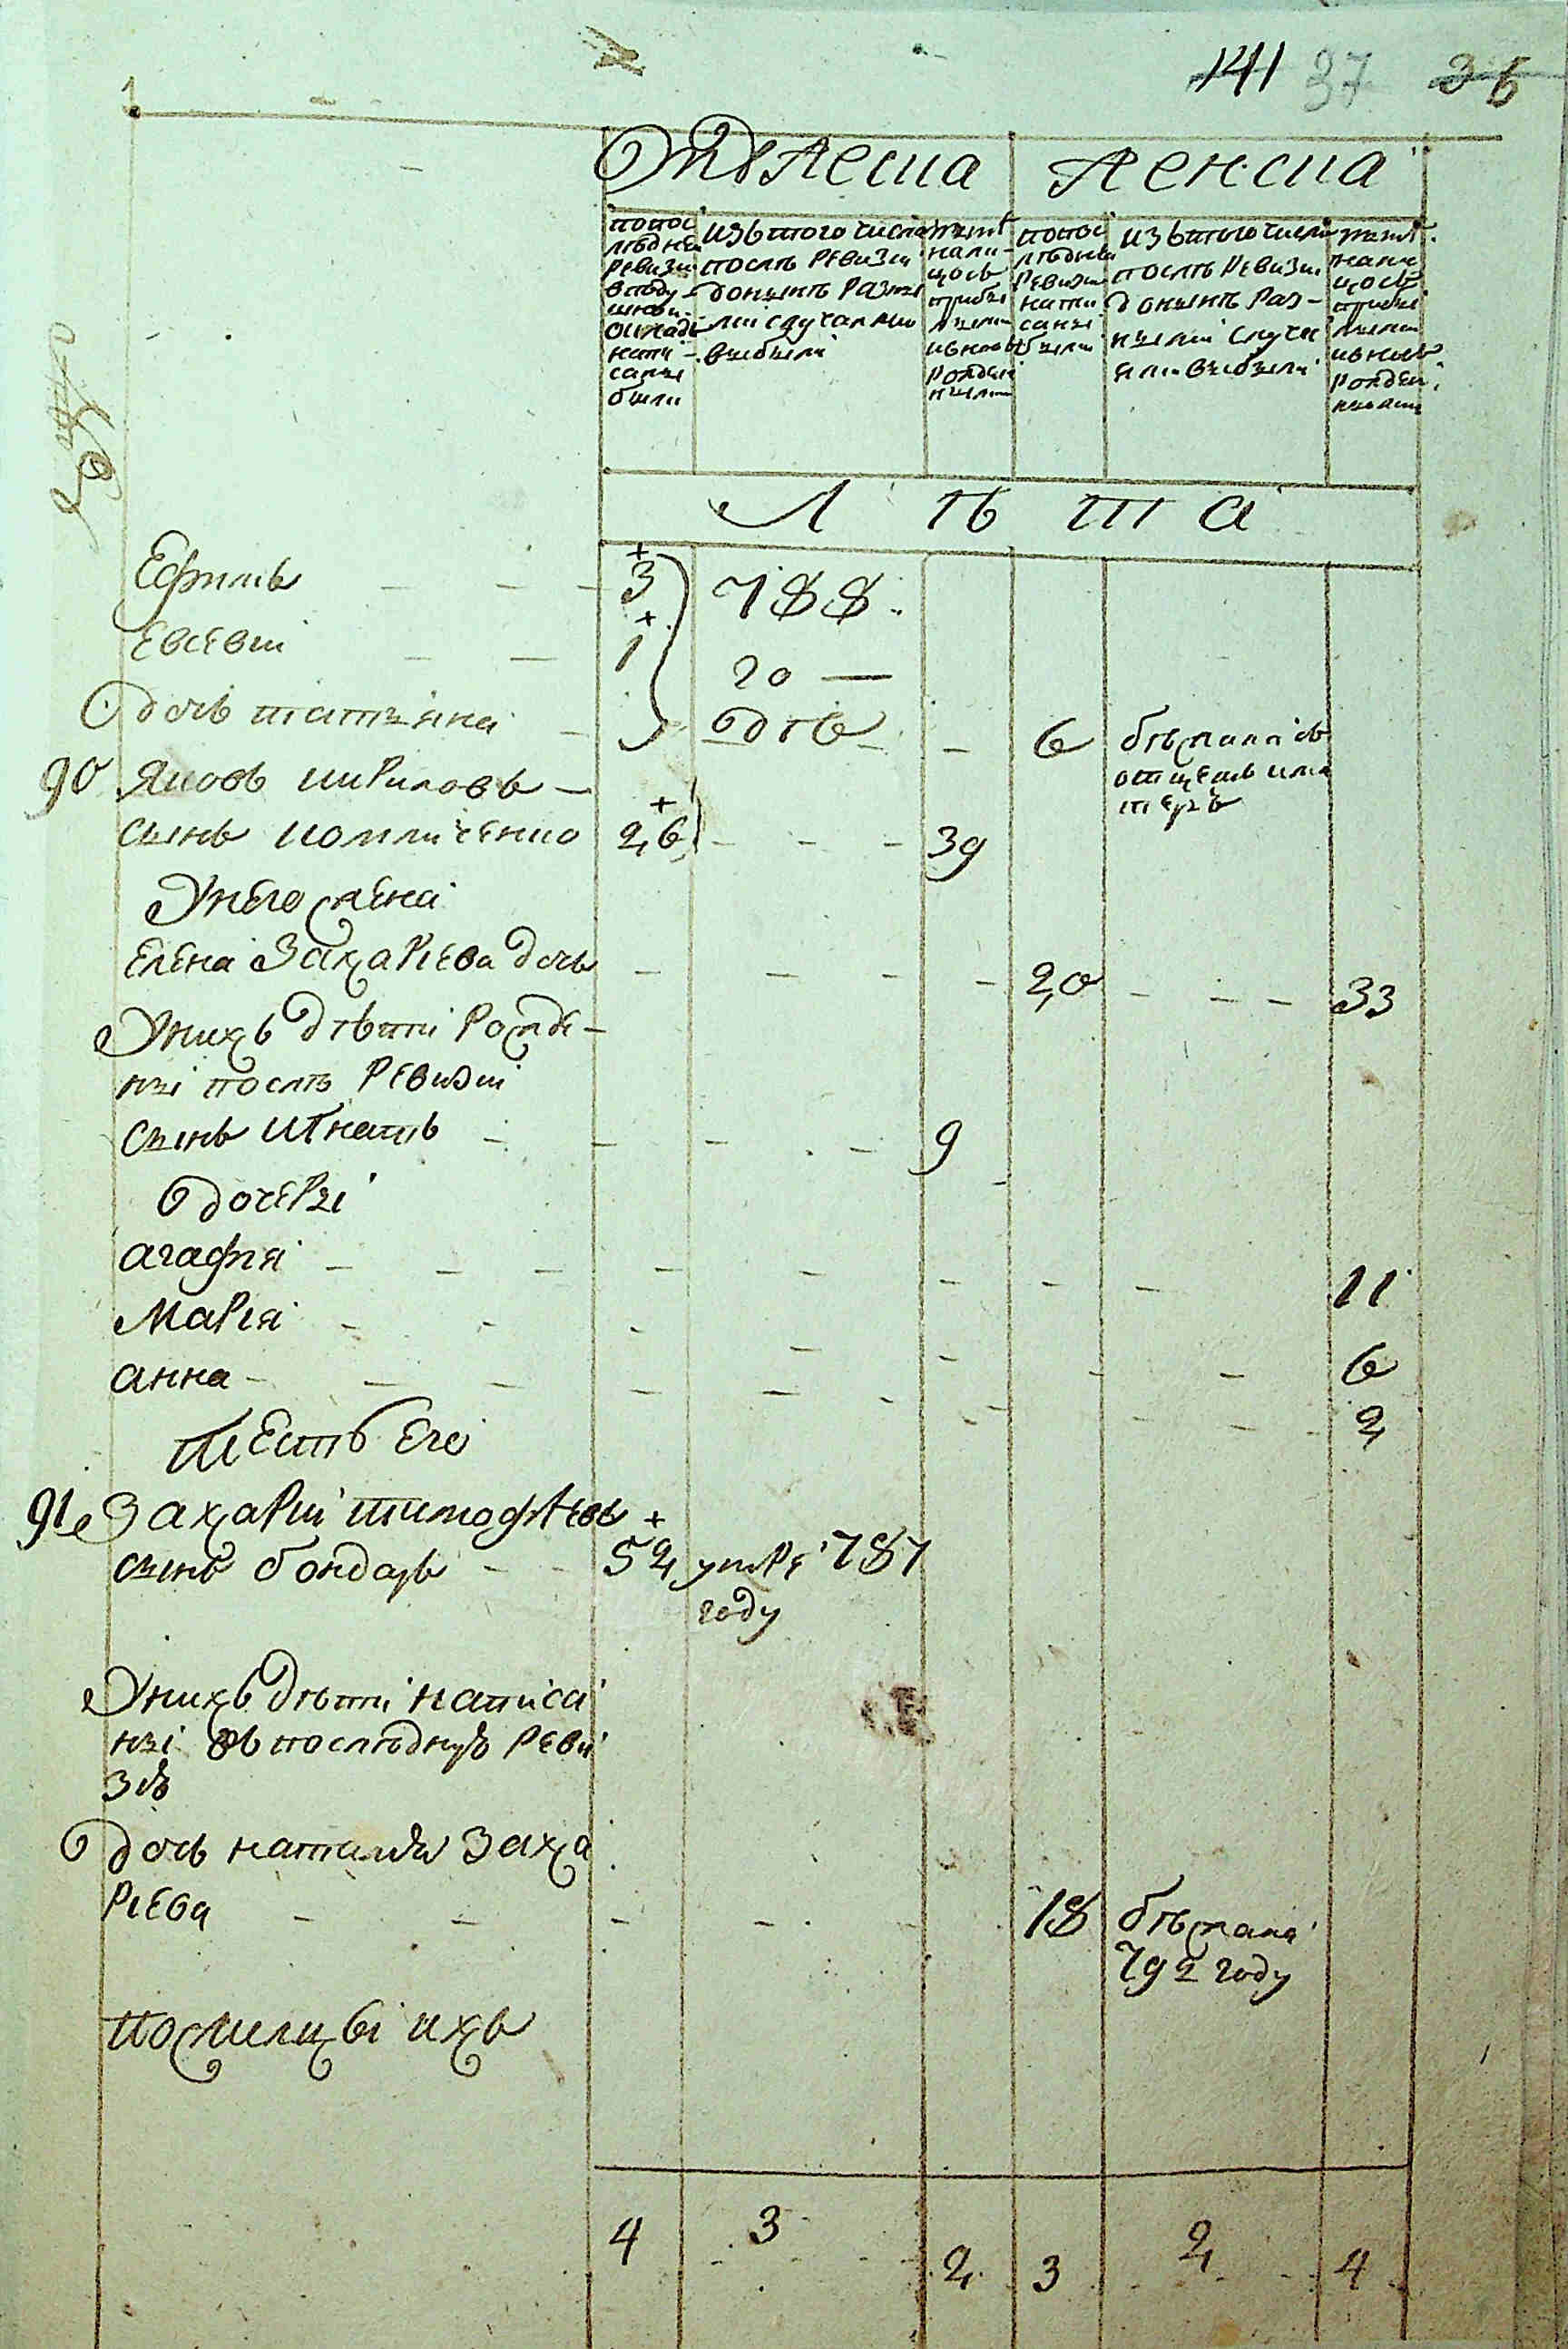 141 37 36
Мужеска Женска
попос
лѣдней
Ревизіи
вподу
шной
окладъ
напи-
саны
были
изътого числа
послѣ Ревизіи
донынѣ Разны
ми случаями
выбыли
нынѣ
нали-
цось
прибы
лыми
ивновь
рожден
ными
попос
лѣдней
Ревизіи
напи
саны
были
изътого числа
послѣ Ревизіи
донынѣ Раз-
ными случа
ями выбыли
нынѣ
нали
цось
прибы
лыми
ивновь
рожден
ными
Л ѣ т а
Ефимъ 3 788
Евсевій 1 го —
дочь татьяна одѣ 6 бѣжала съ
отцемъ има
терю
90 Яковъ кириловъ
сынъ копличенко 26 39
Унего жена
Елена Захаріева дочь 20 33
Унихъ дѣти Рожде-
ны послѣ Ревизіи
сынъ Игнатъ 9
дочеРы
агафія 11
Марія 6
анна 2
Тесть Его
91 Захарій тимофѣевъ
сынъ бондарь 52 умре 787
году
Унихъ дѣти написа
ны въ послѣднюю Реви
зію
дочь наталія Заха
Ріева 18 бѣжала
792 году
пожилцы ихъ
4 3 2 3 2 4